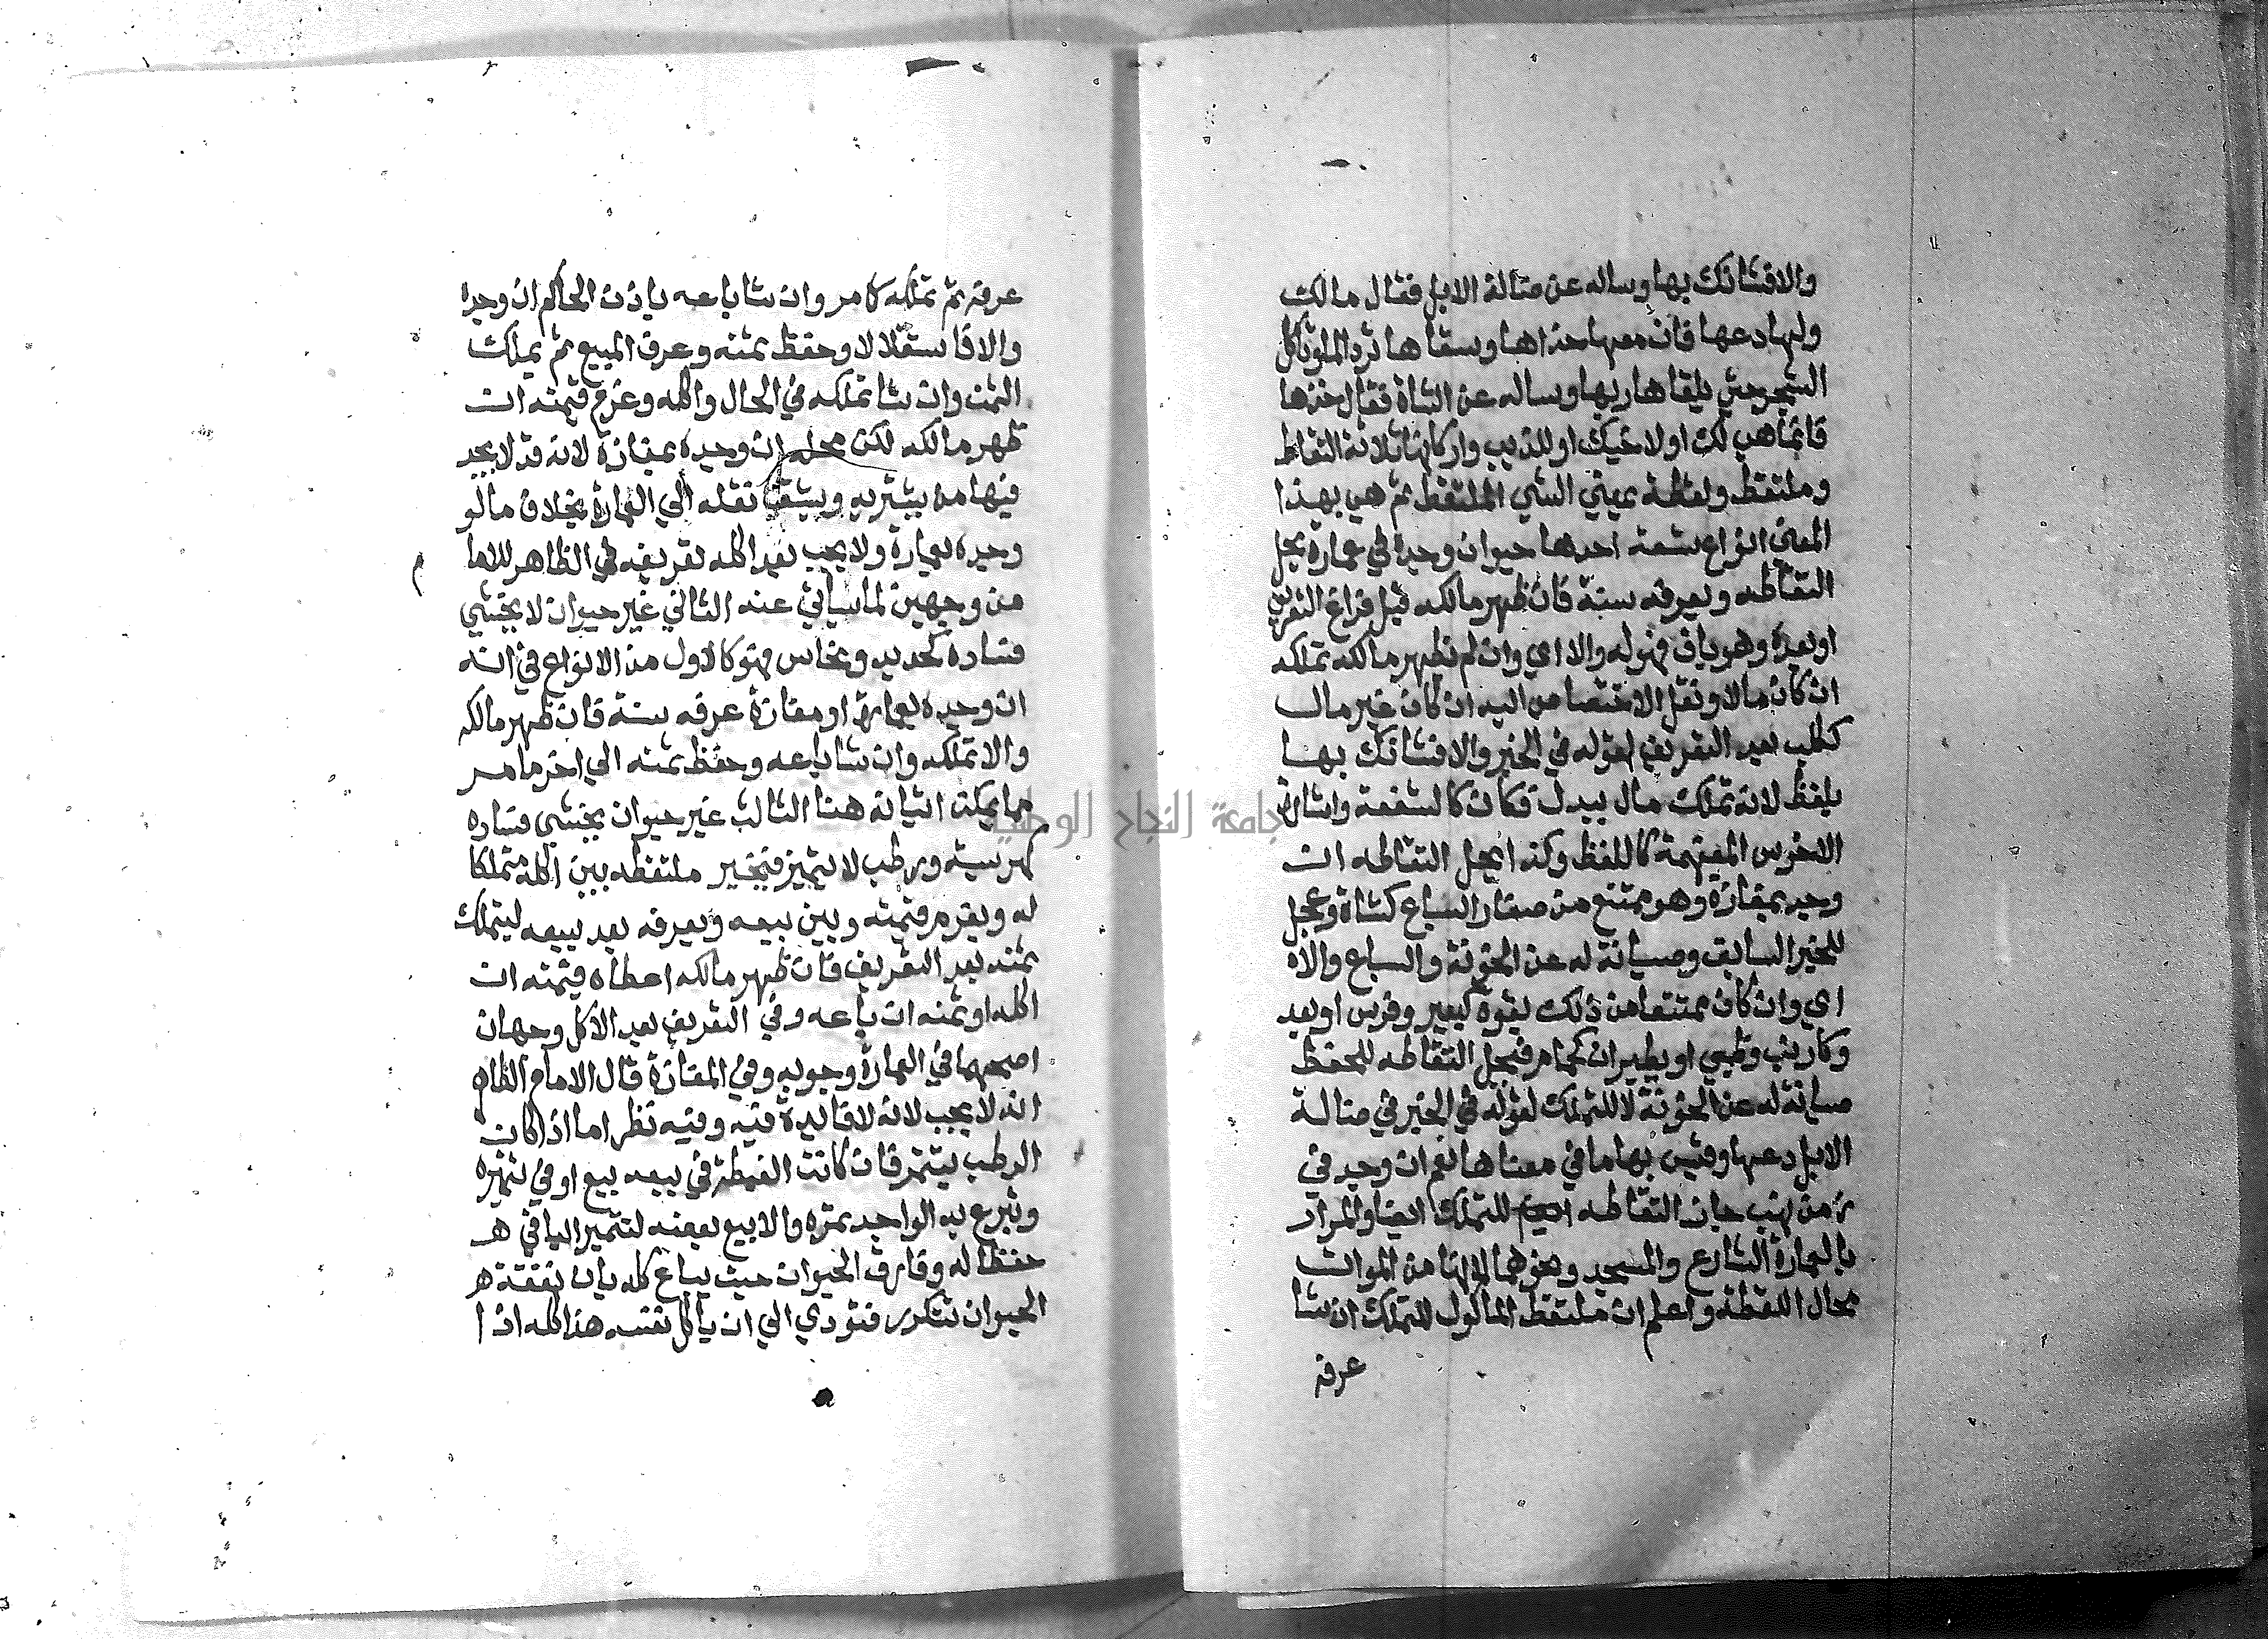 والا فشانك بها وساله عن ضالة الابل فقال مالك
ولها دعها فان معها حذاها وسقاها ترد الما وتاكل
الشجر حتي يلقاها ربها وساله عن الشاة فقال خذها
فانما هي لك او لاخيك او للذيب واركانها ثلاثة التقاط
وملتقط ولقطة بمعني الشي الملتقط ثم هي بهذا
المعني انواع تسعة احدها حيوان وجده في عمارة يحل
التقاطه ويعرفه سنة فان ظهر مالكه قبل فراغ التعريف
او بعده وهو باق فهو له والا اي وان لم يظهر مالكه تملكه
ان كان مالا ونقل الاختصاص اليه ان كان غير مال
ككلب بعد التعريف لقوله في الخبر والا فشانك بها
بلفظ لانه تملك مال ببدل فكان كالشفعة واشارة
الاخرس المفهمة كاللفظ وكذا يحل التقاطه ان
وجد بمفازة وهو ممتنع من صغار السباع كشاة وعجل
للخبر السابق وصيانة له عن الخونة والسباع والا
اي وان كان ممتنعا من ذلك بقوة كبعير وفرس او بعد
وكارنب وظبي او بطيران كحمام فيحل التقاطه للحفظ
صيانة له عن الخونة لا للتملك لقوله في الخبر في ضالة
الابل دعها وقيس بها ما في معناها نعم ان وجد في
زمن نهب جاز التقاطه للتملك ايضا والمراد
بالعمارة الشارع والمسجد ونحوهما لانها من الموات
محال اللقطة واعلم ان ملتقط الماكول للتملك ان شا
عرفه
عرفه ثم تملكه كامر وان شا باعه باذن الحاكم ان وجده
والا فاستقلالا وحفظ ثمنه وعرف المبيع ثم يملك
الثمن وان شا تملكه في الحال واكله وغرم قيمته ان
ظهر مالكه لكن محله ان وجده بمفازة لانه قد لا يجد
فيها من يشتريه ويشق نقله الي العمارة بخلاف ما لو
وجده بعمارة ولا يجب بعد اكله تعريفه في الظاهر للاما
م
من وجهين لما سياتي عنه الثاني غير حيوان لا يخشي
فساده كحديد ونحاس فهو كالاول من الانواع في انه
ان وجده بعمارة او مفازة عرفه سنة فان ظهر مالكه
والا تملكه وان شا باعه وحفظ ثمنه الي اخر ما مر
مما يمكن اتيانه هنا الثالث غير حيوان يخشي فساده
كهريسة ورطب لا يتتمر فيتخير ملتقطه بين اكله متملكا
له ويغرم قيمته وبين بيعه ويعرفه بعد بيعه ليتملك
ثمنه بعد التعريف فان ظهر مالكه اعطاه قيمته ان
اكله او ثمنه ان باعه وفي التعريف بعد الاكل وجهان
اصحهما في العمارة وجوبه وفي المفازة قال الامام الظاه
انه لا يجب لانه لا فايدة فيه وفيه نظر اما اذا كان
الرطب يتتمر فان كانت الغبطة في بيعه بيع او في تتميره
وتبرع به الواجد تمره والا بيع بعضه لتتمير الباقي هـ
حفظا له وفارق الحيوان حيث يباع كله بان نفقة هـ
الحيوان تتكرر فتؤدي الي ان ياكل نفسه هذا كله اذا
جامعة النجاح الوطنية